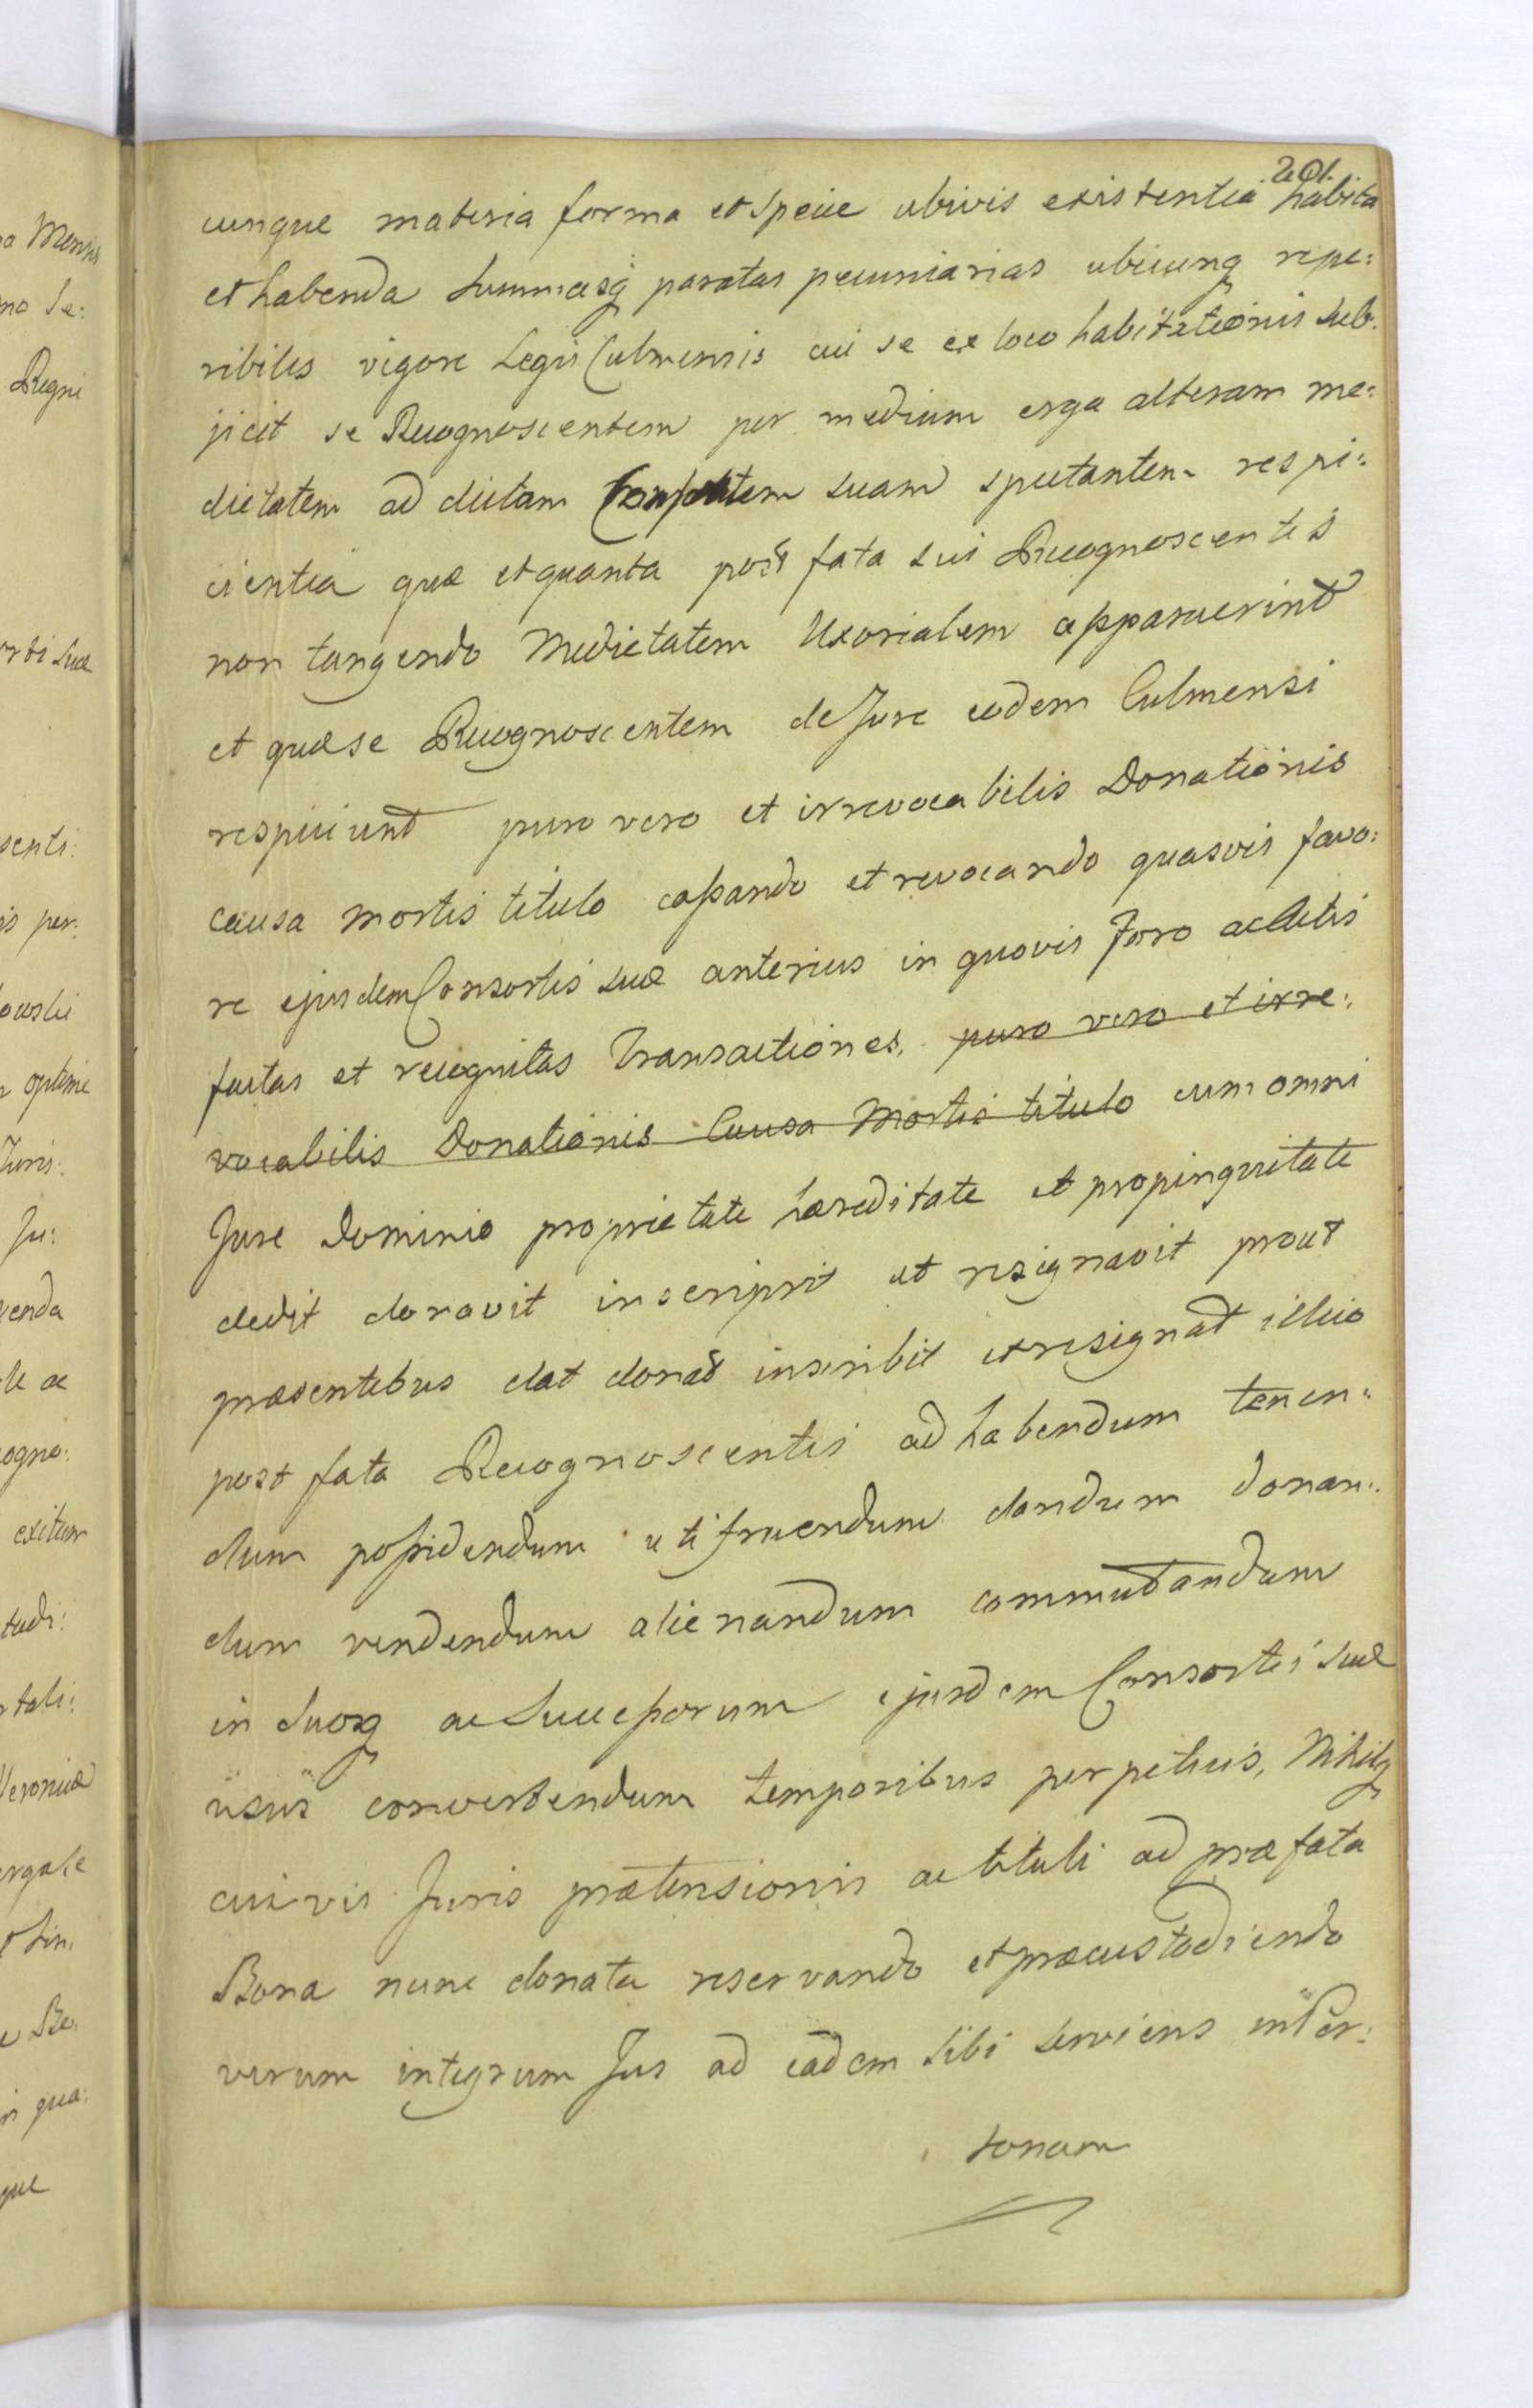 201.
cunque materia forma et specie ubivis existentia habita
et habenda Summasq paratas pecuniarias ubicunq repe:
ribiles vigore Legis Culmensis cui se ex loco habitationis sub:
jicit se Recognoscentem per medium erga alteram me:
dietatem ad dictam Consortem suam spectantem respi:
cientia quæ et quanta post fata sui Recognoscentis
non tangendo Medietatem Uxorialem apparuerint
et quæ se Recognoscentem de Jure eodem Culmensi
respiciunt puro vero et irrevocabilis Donationis
causa mortis titulo cassando et revocando quasvis favo:
re ejusdem Consortis suæ anterius in quovis Foro ac Actis
factas et recognitas Transactiones, puro vero et irre:
vocabilis Donationis Causa Mortis titulo cum omni
Jure Dominio proprietate hæreditate et propinquitate
dedit donavit inscripsit et resignavit prout
præsentibus dat donat inscribit et resignat illico
post fata Recognoscentis ad habendum tenen:
dum possidendum utifruendum dandum donan:
dum vendendum alienandum commutandum
in Suosq ac Successorum ejusdem Consortis suæ
usus convertendum temporibus perpetuis, Nihilq
cuivis Juris prætensionis ac tituli ad præfata
Bona nunc donata reservando et præcustodiendo
verum integrum Jus ad eadem sibi serviens in Per:
sonam